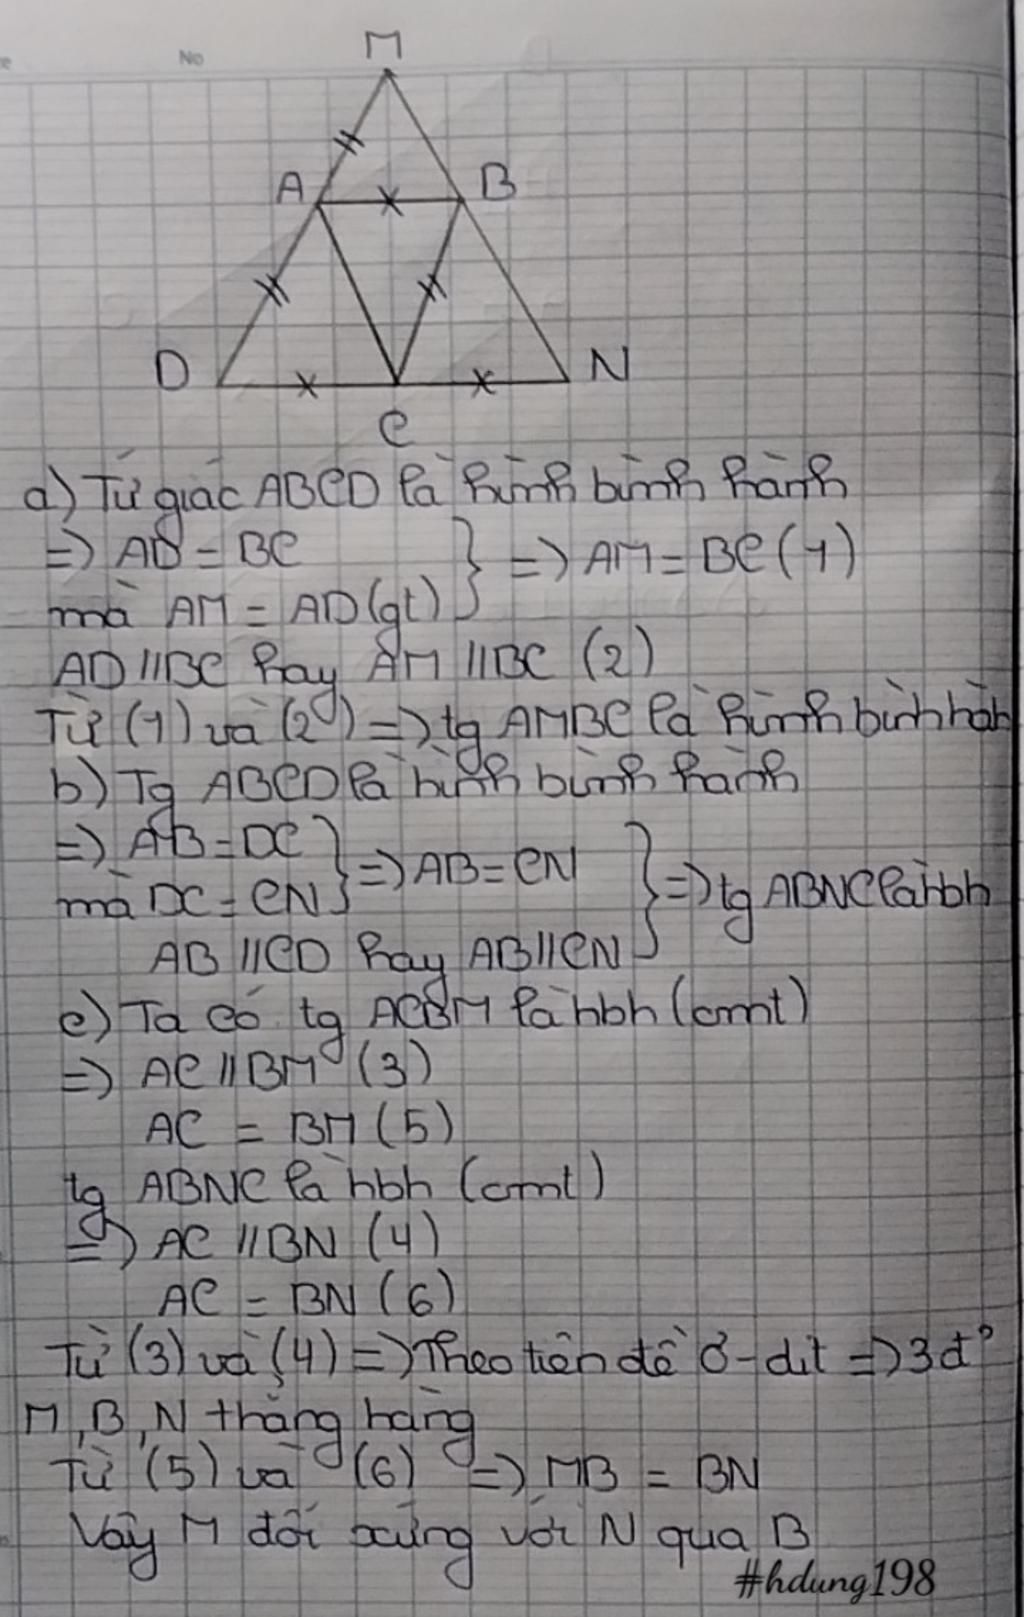 No
M
A
B
D
N
C
a) Tứ giác ABCD là hình bình hành
=> AD = BC
mà AM = AD(gt)
} => AM = BC (1)
AD // BC hay AM // BC (2)
Từ (1) và (2) => tg AMBC là hình bình hành
b) Tg ABCD là hình bình hành
=> AB = DC
mà DC = CN
} => AB = CN
AB // CD hay AB // CN
} => tg ABNC là hbh
c) Ta có tg ACBM là hbh (cmt)
=> AC // BM (3)
AC = BM (5)
tg ABNC là hbh (cmt)
=> AC // BN (4)
AC = BN (6)
Từ (3) và (4) => Theo tiên đề Ơ-dit => 3đ°
M, B, N thẳng hàng
Từ (5) và (6) => MB = BN
Vậy M đối xứng với N qua B
#hdung198